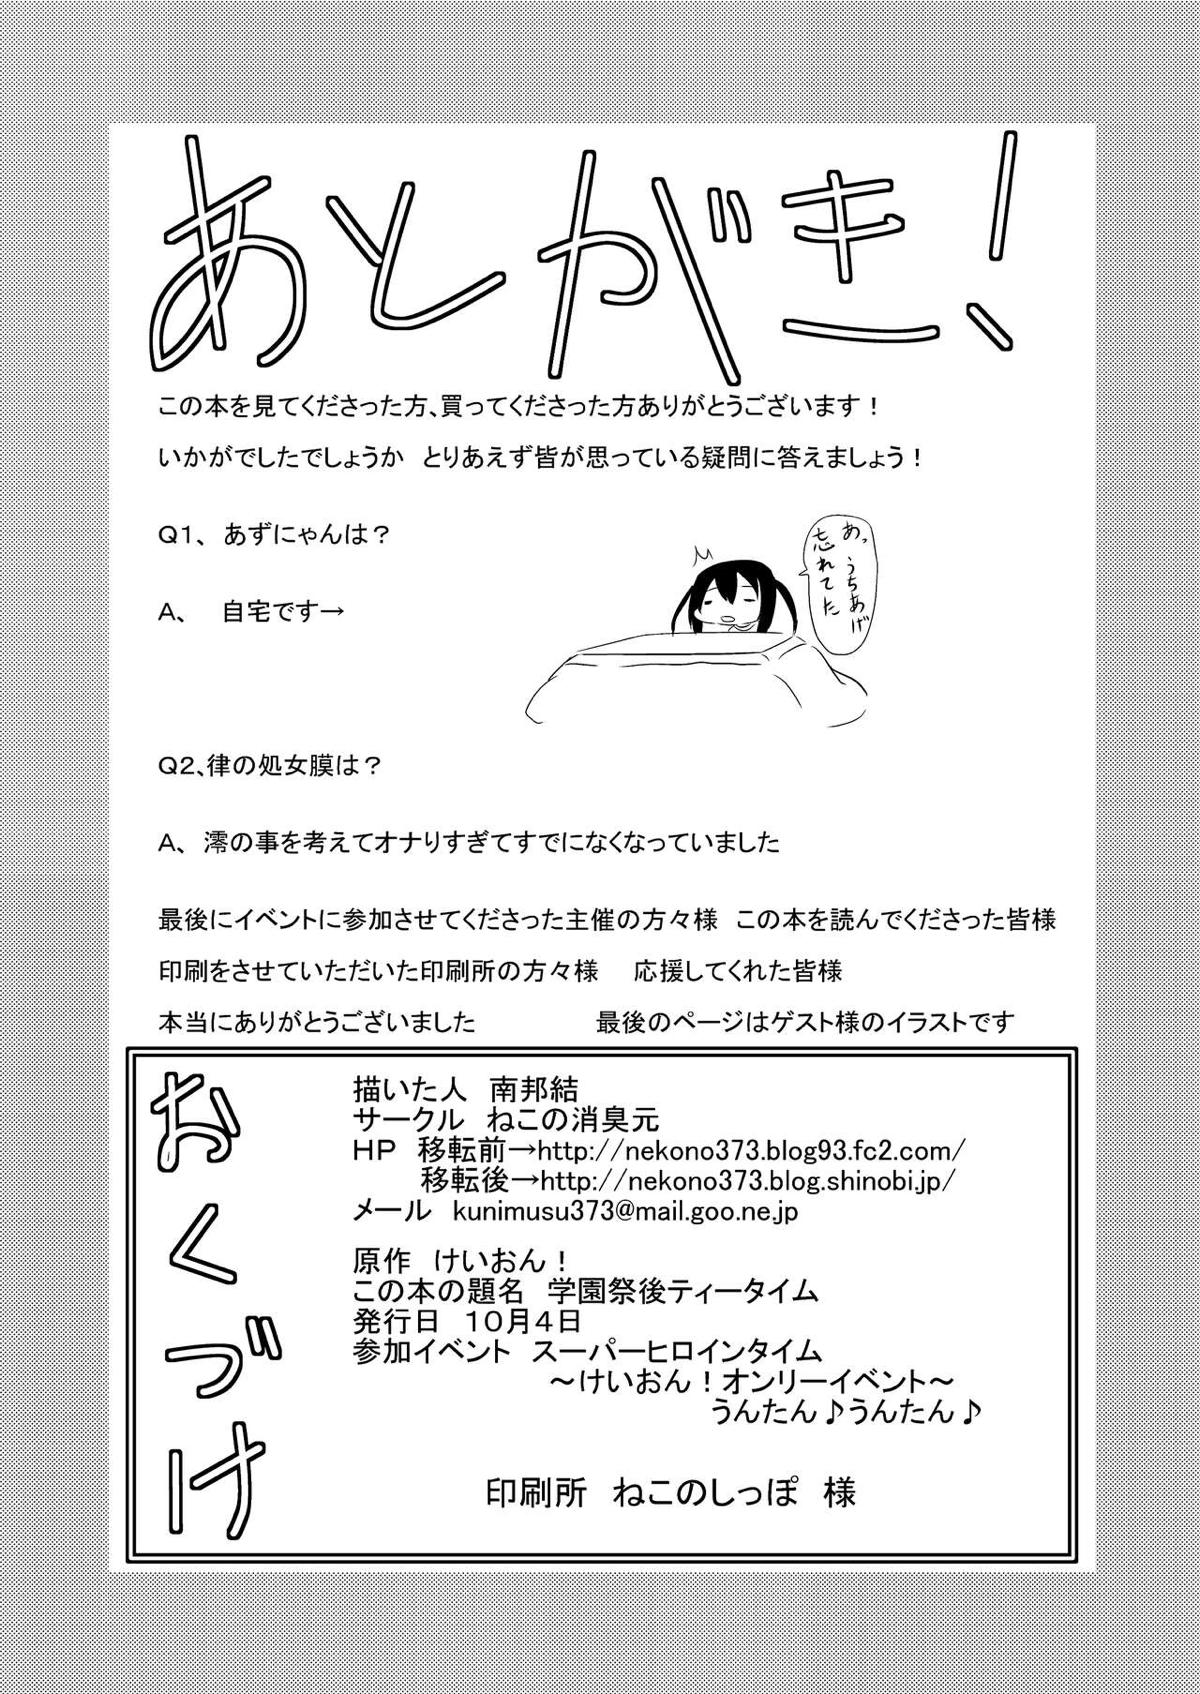 あとがき！
この本を見てくださった方、買ってくださった方ありがとうございます！
いかがでしたでしょうか　とりあえず皆が思っている疑問に答えましょう！
Q1、　あずにゃんは？
あっ、うちあげ
忘れてた
A、　自宅です→
最後にイベントに参加させてくださった主催の方々様　この本を読んでくださった皆様
印刷をさせていただいた印刷所の方々様　応援してくれた皆様
本当にありがとうございました　最後のページはゲスト様のイラストです
おくづけ
描いた人　南邦結
サークル　ねこの消臭元
HP　移転前→http://nekono373.blog93.fc2.com/
移転後→http://nekono373.blog.shinobi.jp/
メール　kunimusu373@mail.goo.ne.jp
原作　けいおん！
この本の題名　学園祭後ティータイム
発行日　10月4日
参加イベント　スーパーヒロインタイム
～けいおん！オンリーイベント～
うんたん♪うんたん♪
印刷所　ねこのしっぽ　様